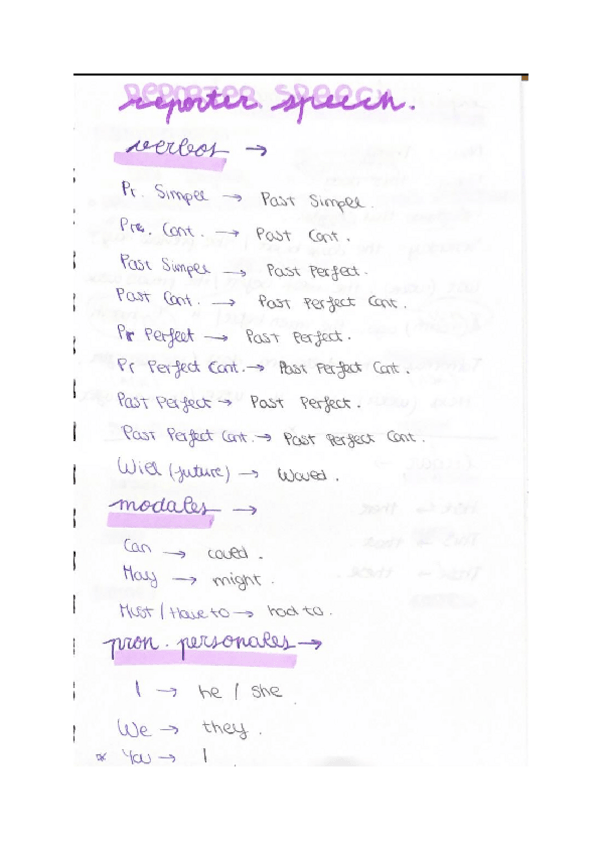 REPORTER SPEECH
reporter speech.
verbos →
Pr. Simple → Past Simple.
Pr. Cont. → Past Cont.
Past Simple → Past Perfect.
Past Cont. → Past Perfect Cont.
Pr Perfect → Past Perfect.
Pr Perfect Cont. → Past Perfect Cont.
Past Perfect → Past Perfect.
Past Perfect Cont. → Past Perfect Cont.
Will (future) → Would.
modales →
Can → could.
May → might.
Must / Have to → had to.
pron. personales →
I → he / she
We → they.
* You → I